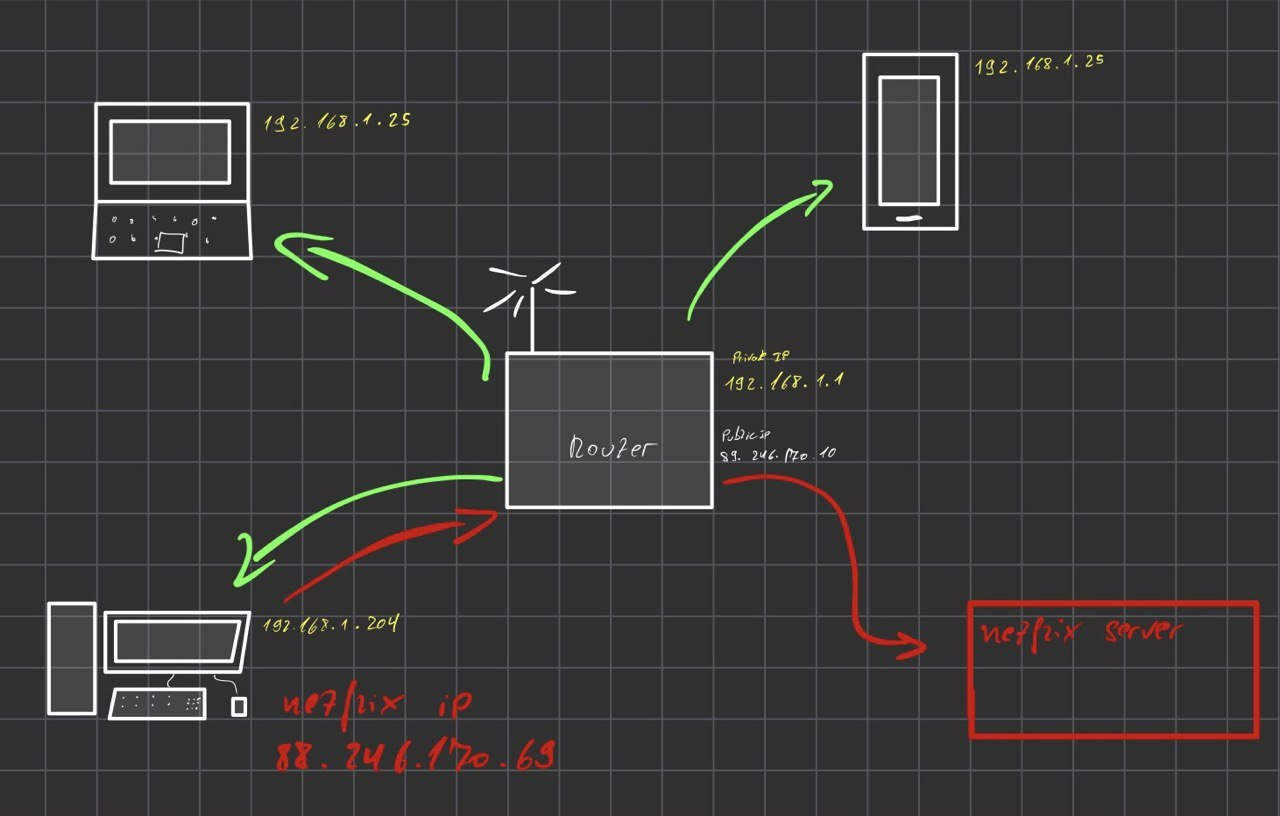 192.168.1.25
192.168.1.25
Private IP
192.168.1.1
Router
Public ip
89.246.170.10
192.168.1.204
netflix ip
88.246.170.69
netflix server